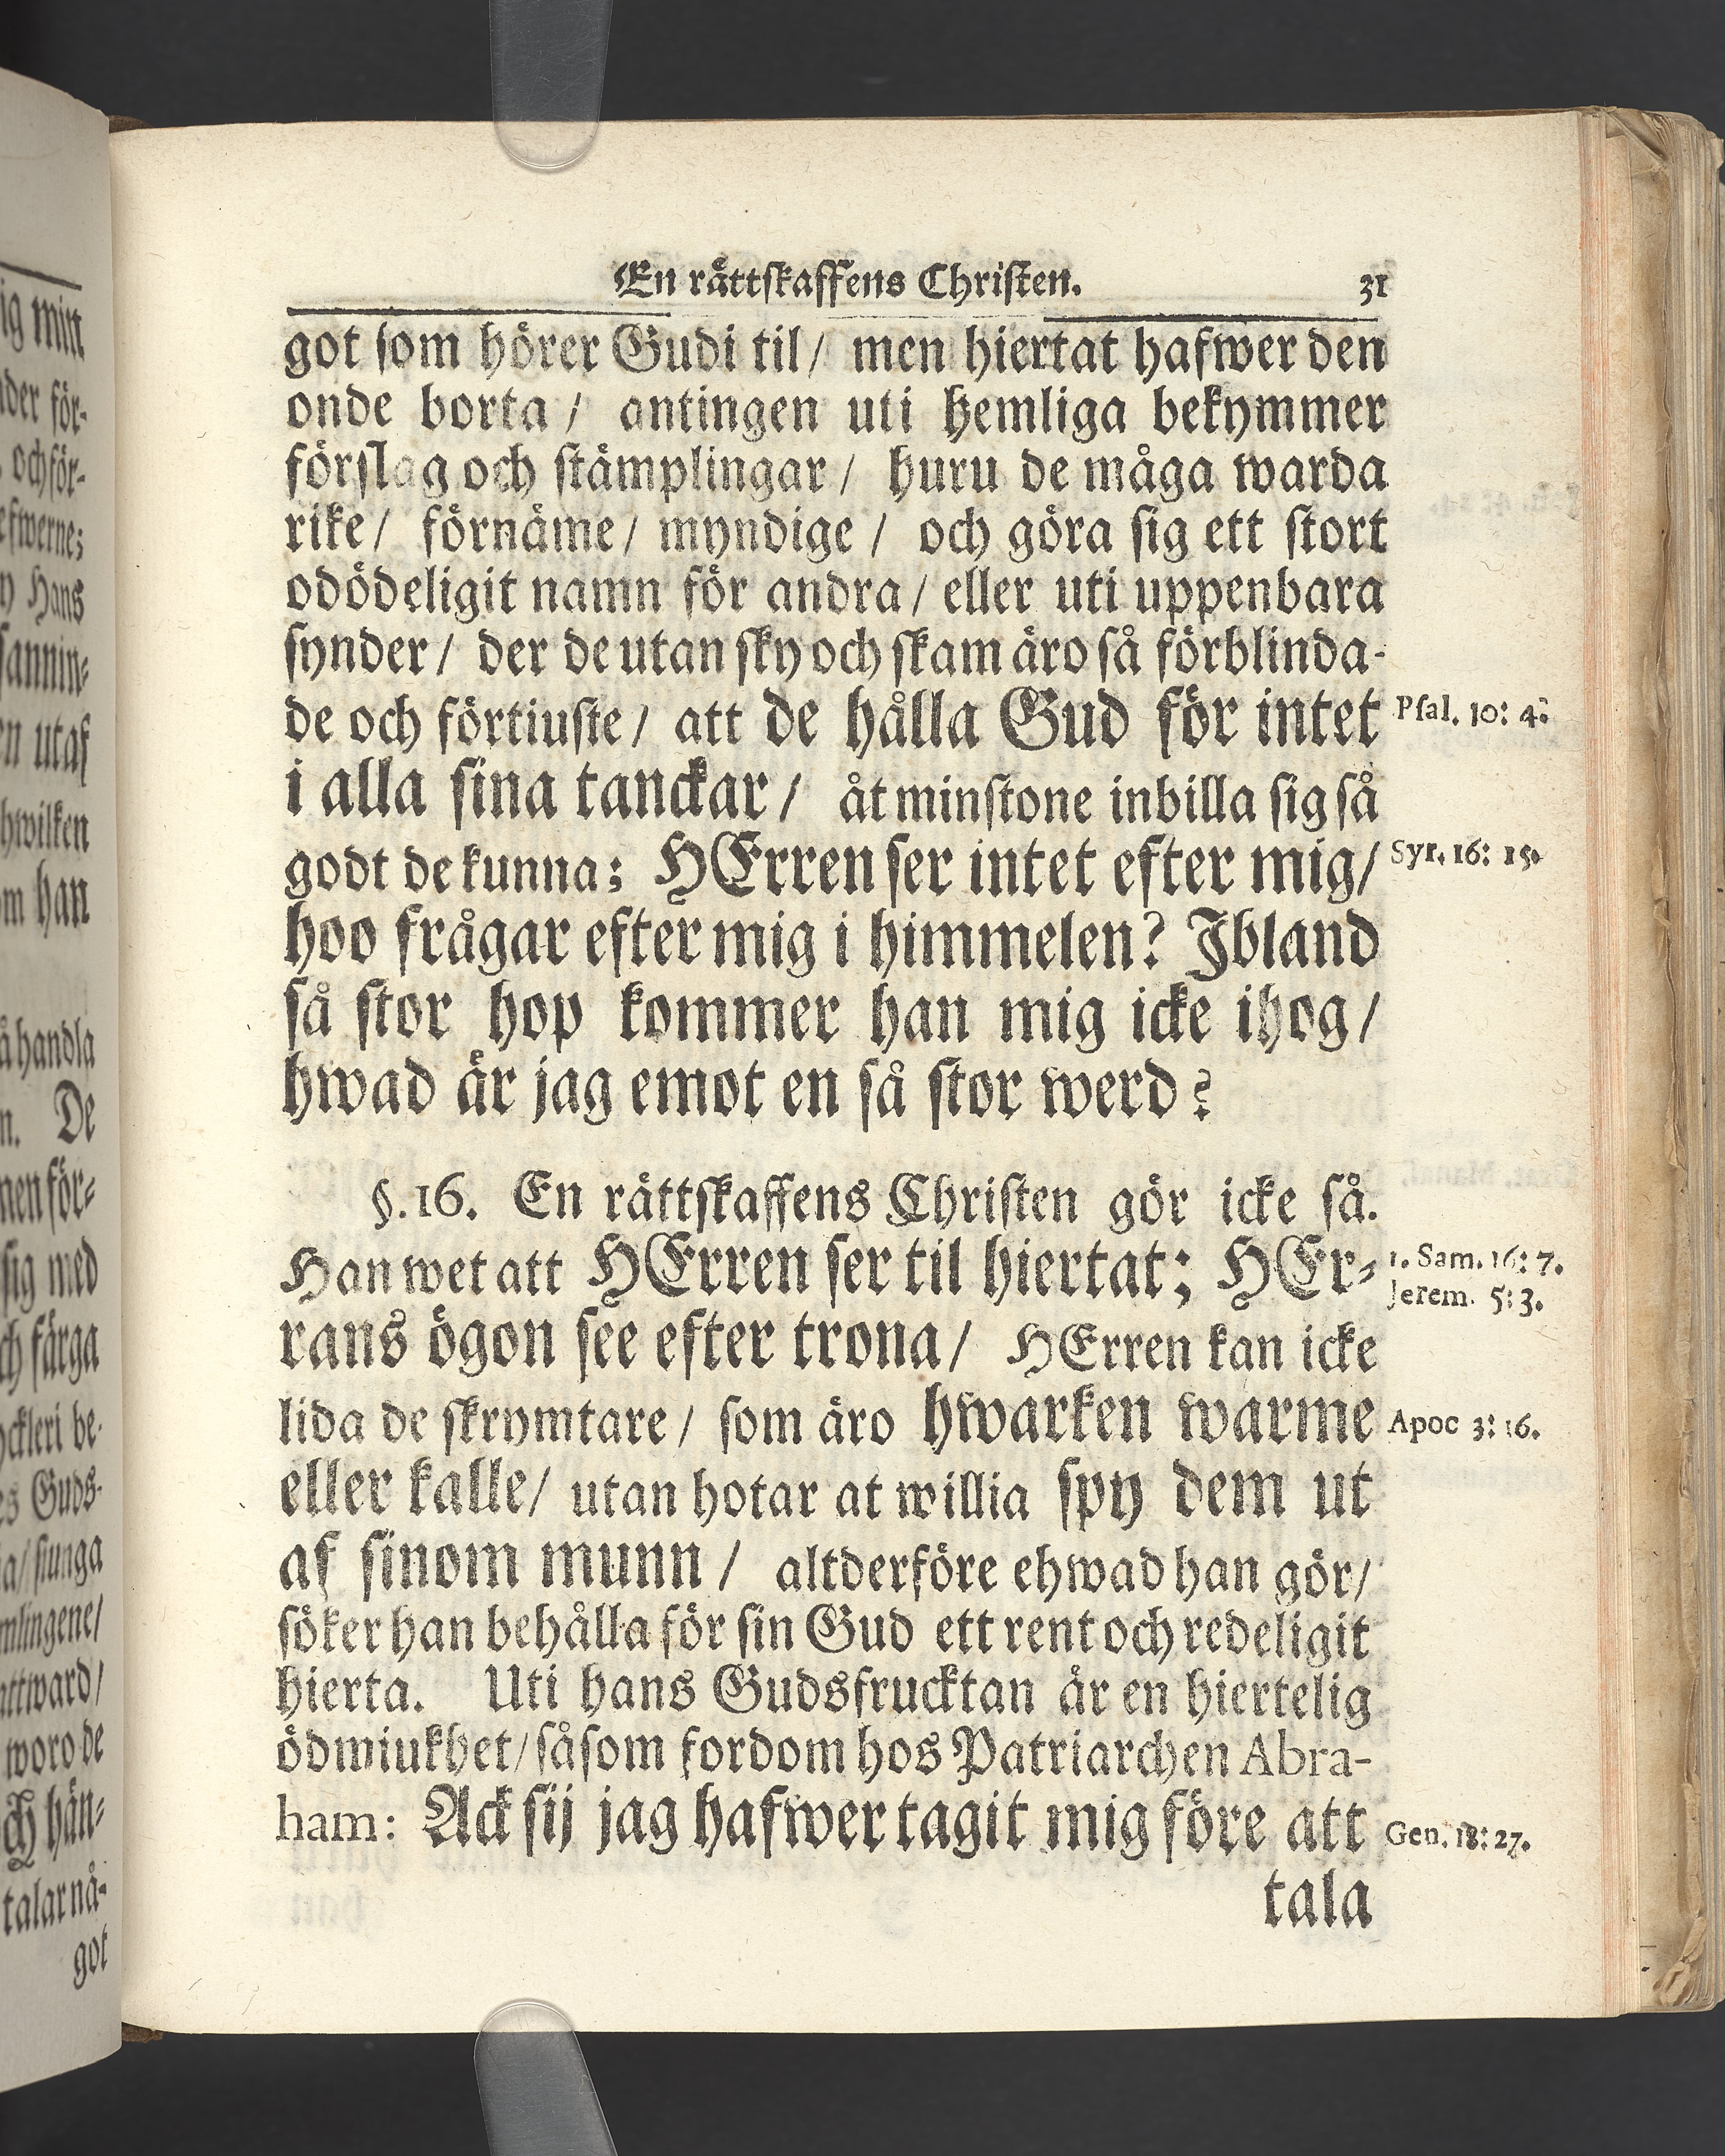 En rättskaffens Christen. 31
got som hörer Gudi til/ men hiertat hafwer den
onde borta/ antingen uti hemliga bekymmer
förslag och stämplingar/ huru de måga warda
rike/ förnäme/ myndige/ och göra sig ett stort
odödeligit namn för andra/ eller uti uppenbara
synder/ der de utan sky och skam äro så förblinda-
de och förtiuste/ att de hålla Gud för intet
Psal. 10: 4.
i alla sina tanckar/ åtminstone inbilla sig så
godt de kunna: HErren ser intet efter mig/
Syr. 16: 15.
hoo frågar efter mig i himmelen? Jbland
så stor hop kommer han mig icke ihog/
hwad är jag emot en så stor werd?
§. 16. En rättskaffens Christen gör icke så.
Han wet att HErren ser til hiertat; HEr-
1. Sam. 16: 7.
Jerem. 5: 3.
rans ögon see efter trona/ HErren kan icke
lida de skrymtare/ som äro hwarken warme
Apoc 3: 16.
eller kalle/ utan hotar at willia spy dem ut
af sinom munn/ altderföre ehwad han gör/
söker han behålla för sin Gud ett rent och redeligit
hierta. Uti hans Gudsfrucktan är en hiertelig
ödmiukhet/ såsom fordom hos Patriarchen Abra-
ham: Ack sij jag hafwer tagit mig före att
Gen. 18: 27.
tala